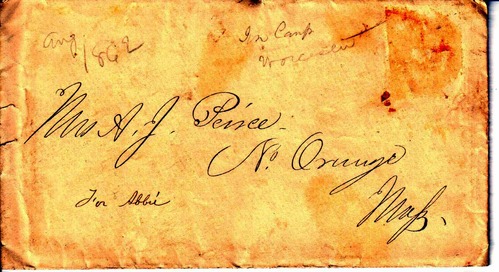 Aug 1862
In Camp
Worcester
Mrs A. J. Peirce.
No. Orange
Mass.
For Abbie